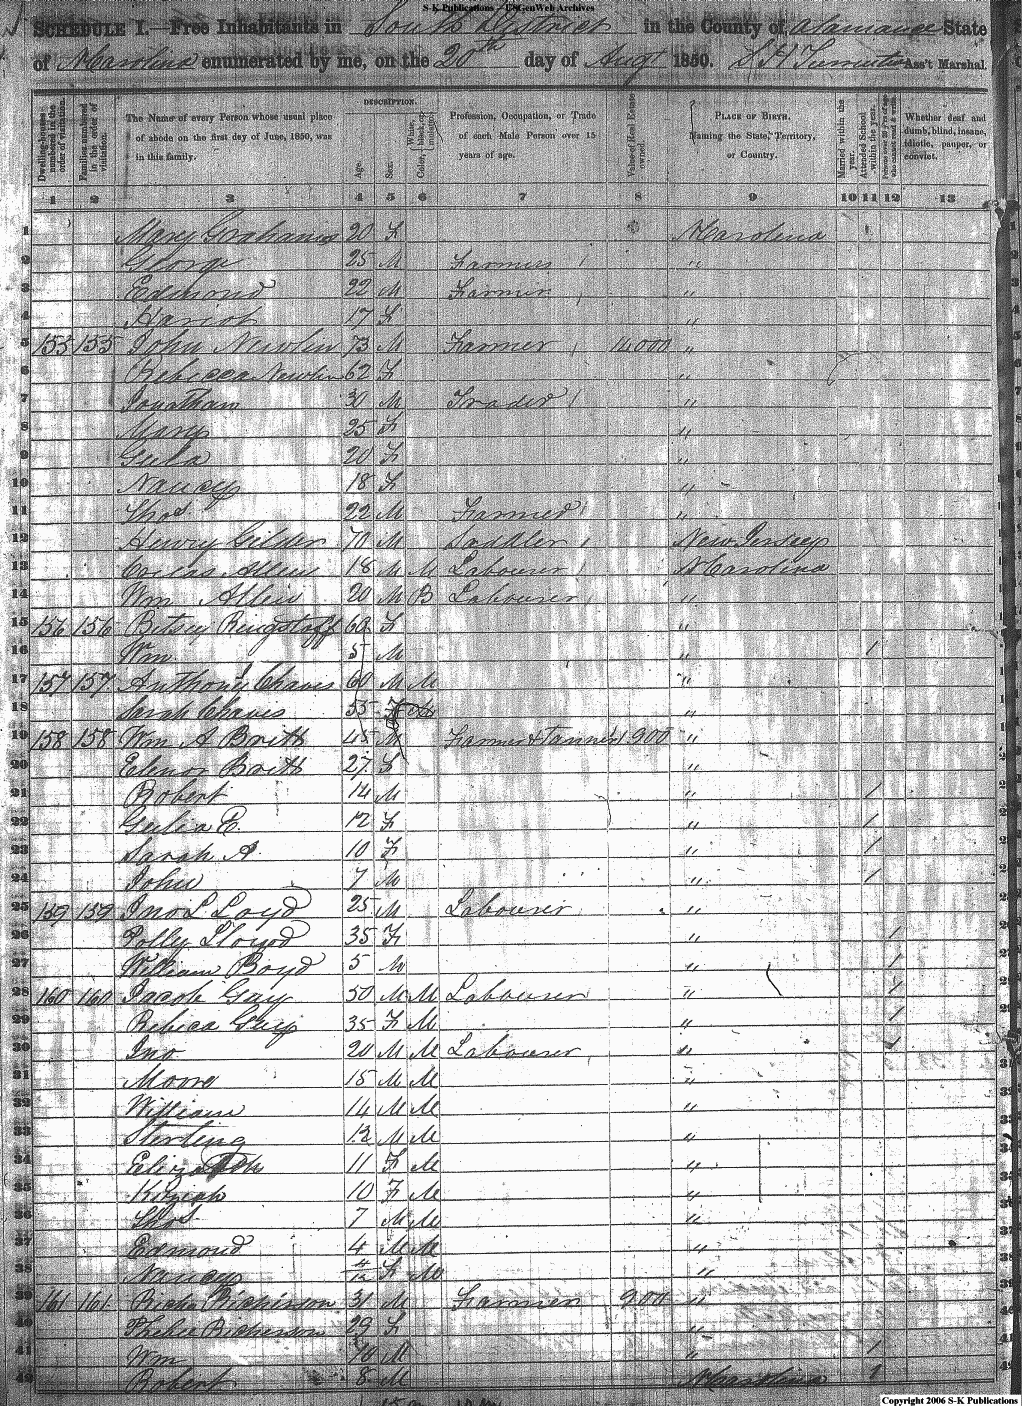 S-K Publications - USGenWeb Archives
SCHEDULE I.—Free Inhabitants in South District in the County of Alamance State
of N Carolina enumerated by me, on the 20th day of Augt 1850. Ass't Marshal.
DESCRIPTION.
Dwelling-houses numbered in the order of visitation.
Families numbered in the order of visitation.
The Name of every Person whose usual place of abode on the first day of June, 1850, was in this family.
Age.
Sex.
Color, White, black, or mulatto.
Profession, Occupation, or Trade of each Male Person over 15 years of age.
Value of Real Estate owned.
PLACE OF BIRTH. Naming the State, Territory, or Country.
Married within the year.
Attended School within the year.
Persons over 20 y'rs of age who cannot read & write.
Whether deaf and dumb, blind, insane, idiotic, pauper, or convict.
1 2 3 4 5 6 7 8 9 10 11 12 13
1 Mary 20 F N Carolina
2 George 25 M Farmer "
3 Edmond 22 M Farmer "
4 Hariot 17 F "
5 155 155 John Newlin 73 M Farmer 14000 "
6 Rebecca Newlin 62 F "
7 Jonathan 30 M Trader "
8 Mary 25 F "
9 Gula 20 F "
10 Nancy 18 F "
11 Thos 22 M Farmer "
12 Henry Gilder 70 M Saddler New Jersey
13 Allen 18 M M Labourer N Carolina
14 Wm Allen 20 M B Labourer "
15 156 156 Betsey 60 F "
16 Wm 5 M " 1
17 157 157 Anthony Chavis 60 M M "
18 Sarah Chavis 55 F "
19 158 158 Wm A Britt 45 M Farmer & Tanner 900 "
20 Elenor Britt 27 F "
21 Robert 14 M " 1
22 Gulia E. 12 F " 1
23 Sarah A. 10 F " 1
24 John 7 M " 1
25 159 159 Jno L Loyd 25 M Labourer "
26 Polley Lloyd 35 F " 1
27 William Boyd 5 M " 1
28 160 160 Jacob Guy 50 M M Labourer " 1
29 Rebeca Guy 35 F M " 1
30 Jno 20 M M Labourer " 1
31 Moore 15 M M "
32 William 14 M M "
33 Sterling 12 M M "
34 Elizabeth 11 F M "
35 Keziah 10 F M "
36 Thos 7 M M "
37 Edmond 4 M M "
38 Nancy 4/12 F M "
39 161 161 31 M Farmer 900 "
40 29 F "
41 Wm 14 M " 1
42 Robert 8 M N Carolina 1
Copyright 2006 S-K Publications